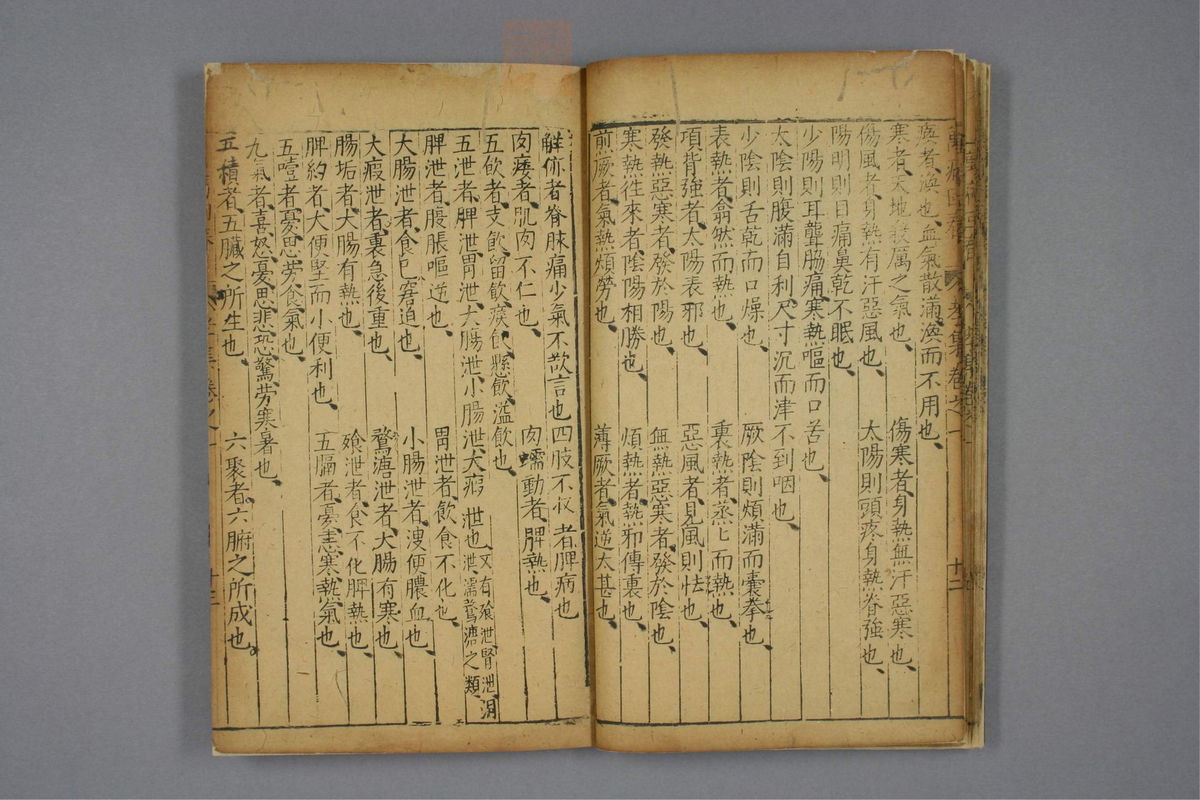 痿者渙也血氣散滿渙而不用也
寒者天地殺厲之氣也 傷寒者身熱無汗惡寒也
傷風者身熱有汗惡風也 太陽則頭疼身熱脊強也
陽明則目痛鼻乾不眠也
少陽則耳聾脇痛寒熱嘔而口苦也
太陰則腹滿自利尺寸沉而津不到咽也
少陰則舌乾而口燥也 厥陰則煩滿而囊拳也
表熱者翕然而熱也 裏熱者蒸〻而熱也
項背強者太陽表邪也 惡風者見風則怯也
發熱惡寒者發於陽也 無熱惡寒者發於陰也
寒熱往來者陰陽相勝也 煩熱者熱邪傳裏也
煎厥者氣熱煩勞也 薄厥者氣逆太甚也
解㑊者脊脉痛少氣不欬言也四肢不收者脾病也
肉痿者肌肉不仁也 肉蠕動者脾熱也
五飲者支飲留飲痰飲懸飲溢飲也
五泄者脾泄胃泄大腸泄小腸泄大瘕泄也又有飱泄腎泄洞泄濡泄鶩溏之類
脾泄者腹脹嘔逆也 胃泄者飲食不化也
大腸泄者食已窘迫也 小腸泄者溲便膿血也
大瘕泄者裏急後重也 鶩溏泄者大腸有寒也
腸垢者大腸有熱也 飱泄者食不化脾熱也
脾約者大便堅而小便利也
五噎者憂思勞食氣也 五膈者憂恚寒熱氣也
九氣者喜怒憂思悲恐驚勞寒暑也
五積者五臟之所生也 六聚者六腑之所成也